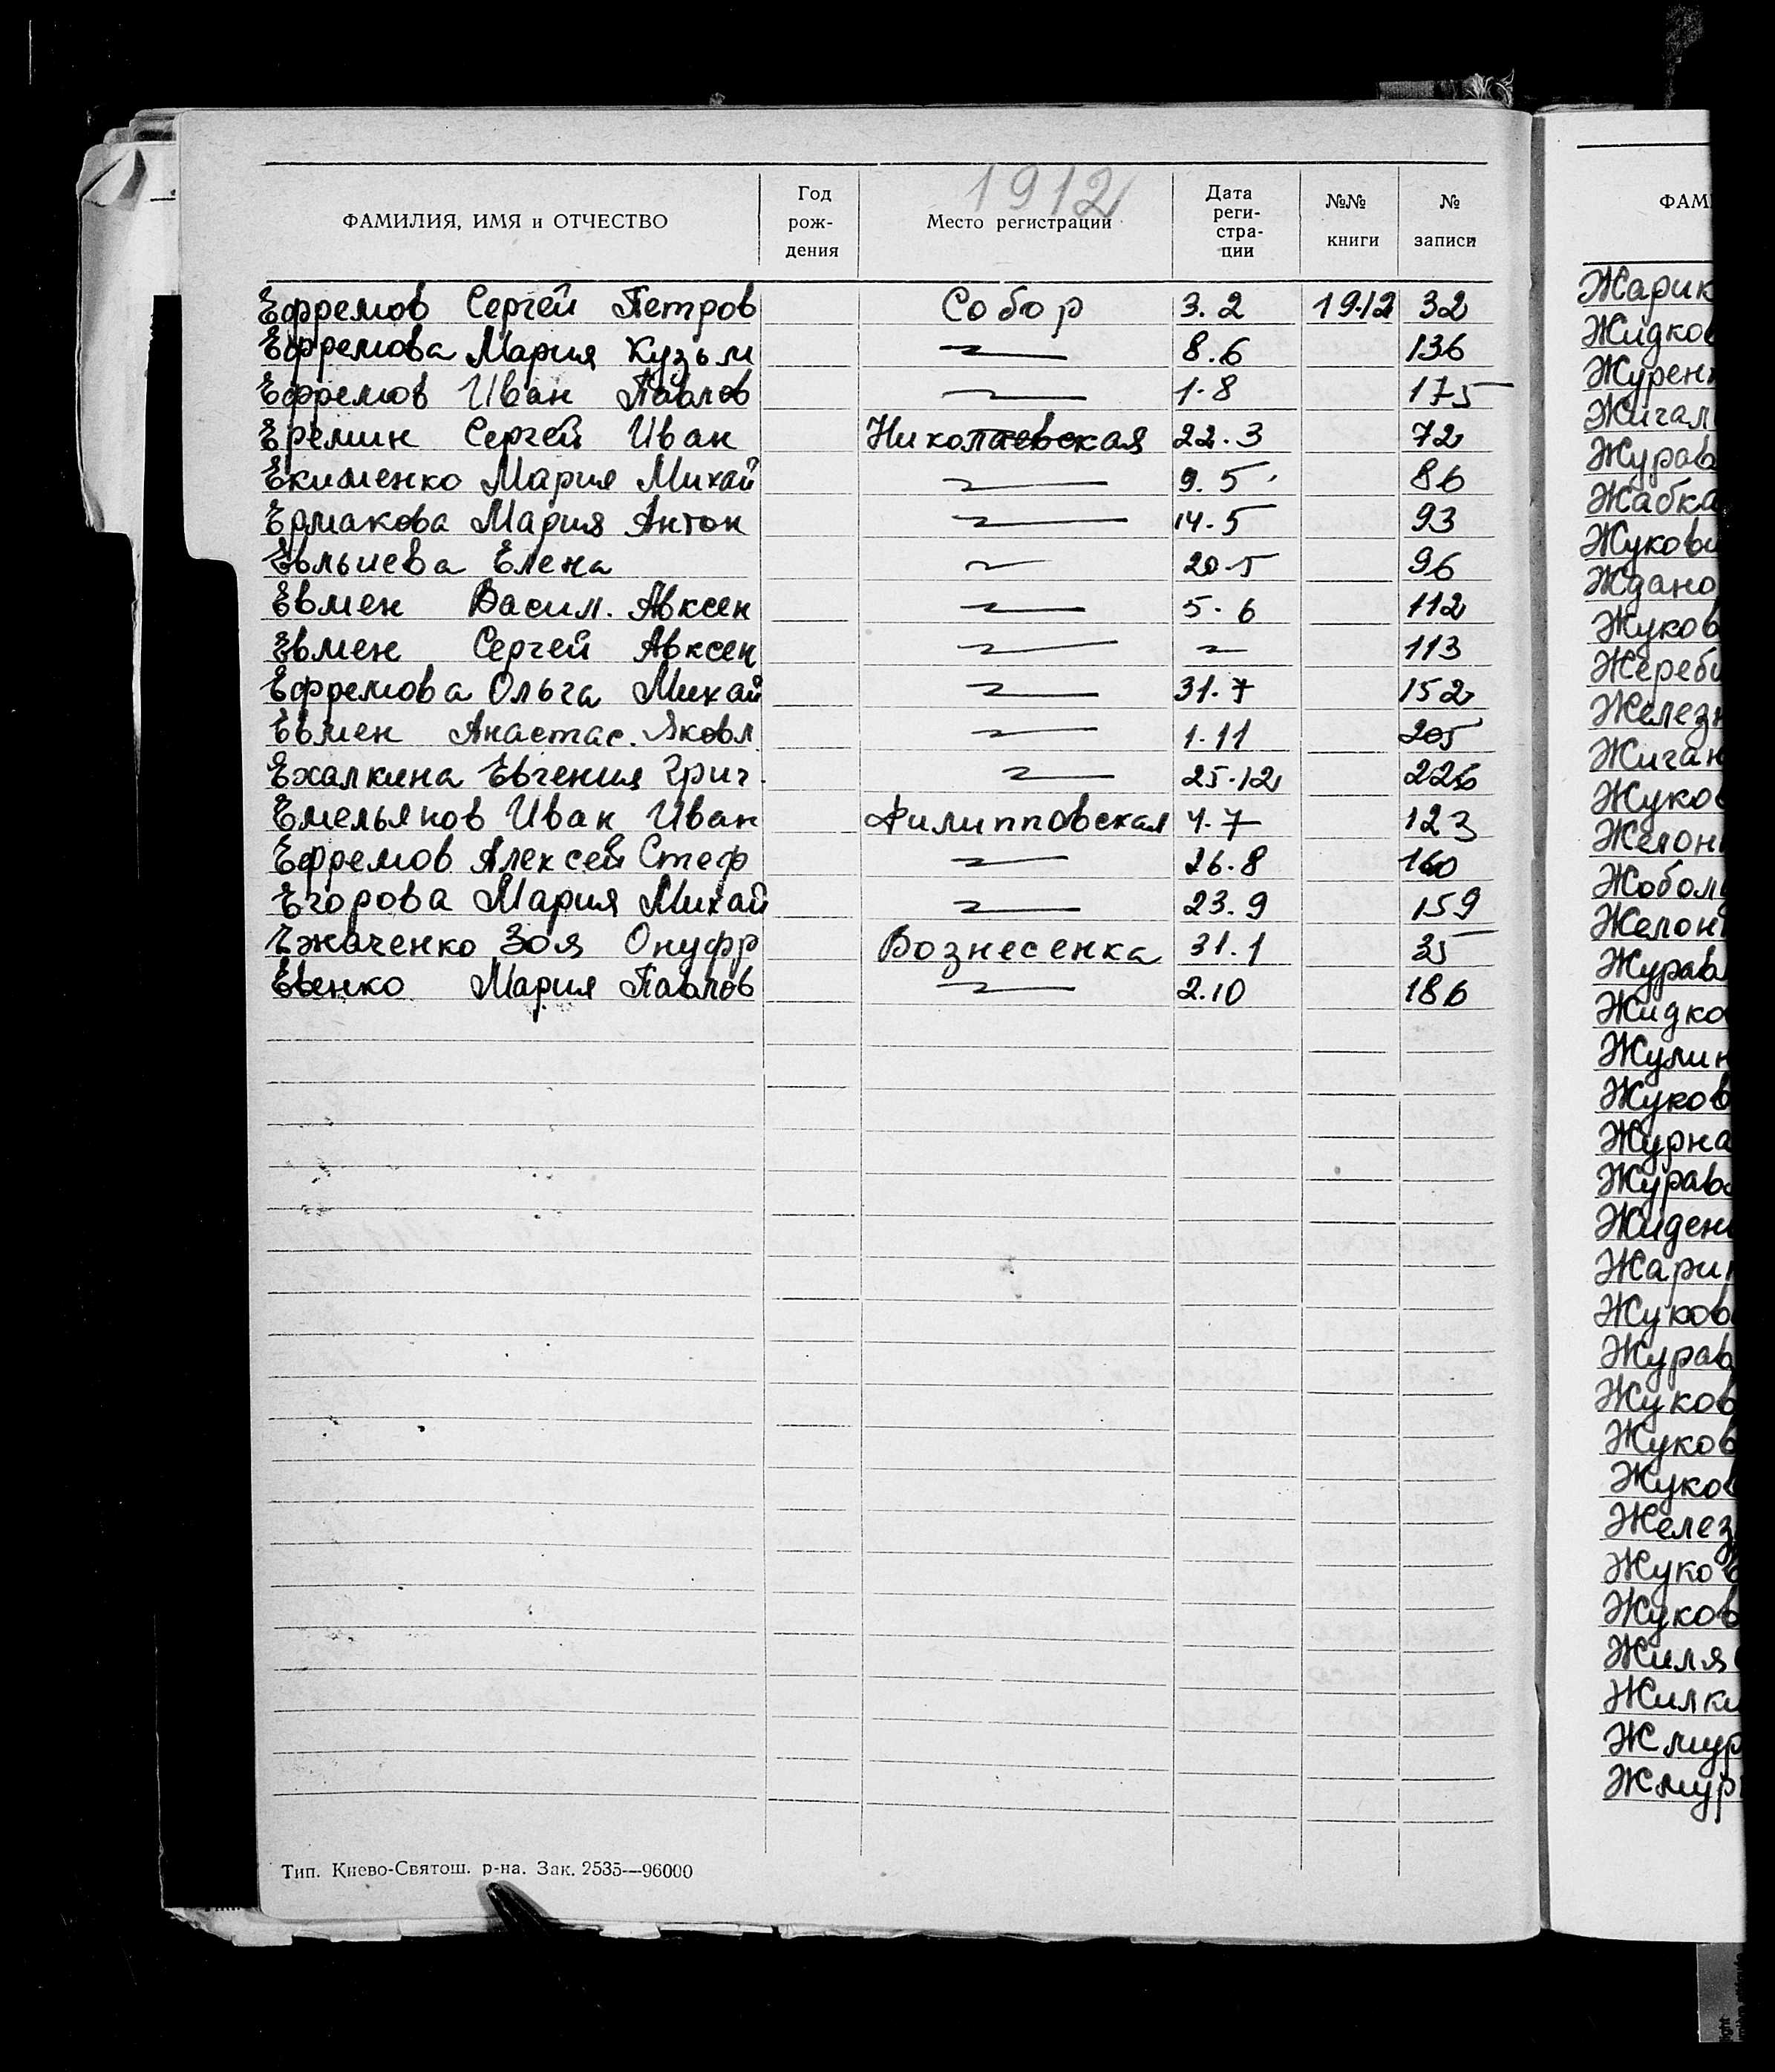 1912
ФАМИЛИЯ, ИМЯ и ОТЧЕСТВО Год рож- дения Место регистрации Дата реги- стра- ции №№ книги № записи
Ефремов Сергей Петров Собор 3.2 1912 32
Ефремова Мария Кузьм 8.6 136
Ефремов Иван Павлов 1.8 175
Еремин Сергей Иван Николаевская 22.3 72
Екименко Мария Михай 9.5 86
Ермакова Мария Антон 14.5 93
Елена 20.5 96
Евмен Васил. Авксен 5.6 112
Евмен Сергей Авксен 113
Ефремова Ольга Михай 31.7 152
Евмен Анастас. Яковл. 1.11 205
Ехалкина Евгения Григ. 25.12 226
Емельянов Иван Иван Филипповская 4.7 123
Ефремов Алексей Стеф 26.8 160
Егорова Мария Михай 23.9 159
Ежаченко Зоя Онуфр Вознесенка 31.1 35
Евенко Мария Павлов 2.10 186
Тип. Киево-Святош. р-на. Зак. 2535—96000
ФАМ
Жарик
Жидков
Журен
Жигал
Журав
Жабка
Жукови
Ждано
Жуков
Жереб
Желез
Жиган
Жуков
Желон
Жобол
Желон
Журав
Жидко
Жулин
Жуков
Журна
Журав
Жиден
Жари
Жуков
Журав
Жуков
Жуков
Жуков
Желез
Жуков
Жуков
Жиля
Жилки
Жмур
Жмур